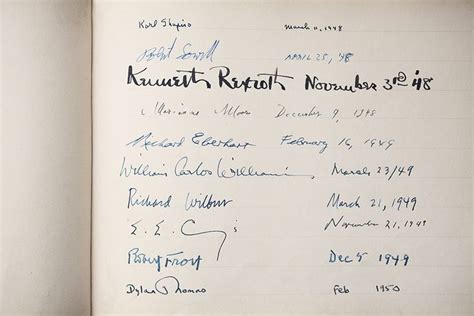 Karl Shapiro March 11, 1948
Robert Lowell APRIL 25, '48
Kenneth Rexroth November 3rd '48
Marianne Moore December 9, 1948
Richard Eberhart February 16, 1949
William Carlos Williams March 23/49
Richard Wilbur March 21, 1949
E. E. C November 21, 1949
Robert Frost Dec 5 1949
Dylan Thomas Feb 1950